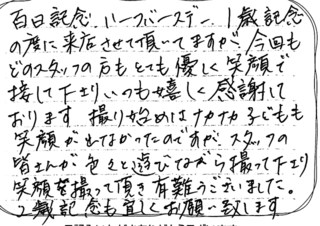 百日記念 ハーフバースデー 1歳記念
の度に来店させて頂いてますが、今回も
どのスタッフの方もとても優しく笑顔で
接して下さりいつも嬉しく感謝して
おります 撮り始めはナカナカ子どもも
笑顔が出なかったのですが、スタッフの
皆さんが色々と遊びながら撮って下さり
笑顔を撮って頂き有難うございました。
2歳記念も宜しくお願い致します